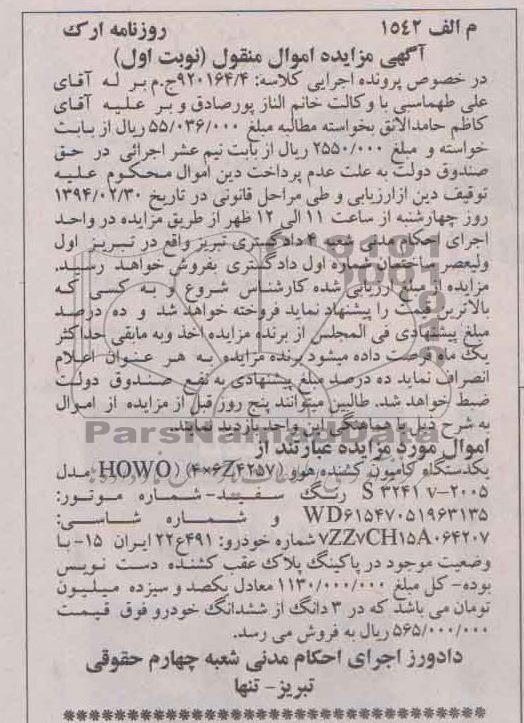 م الف ۱۵۴۲ روزنامه ارک
آگهی مزایده اموال منقول (نوبت اول)
در خصوص پرونده اجرایی کلاسه: ۹۲۰۱۶۴/۴ج.م بر له آقای
علی طهماسبی با وکالت خانم الناز پورصادق و بر علیه آقای
کاظم حامدالانق بخواسته مطالبه مبلغ ۵۵/۰۳۶/۰۰۰ ریال از بابت
خواسته و مبلغ ۲۵۵۰/۰۰۰ ریال از بابت نیم عشر اجرائی در حق
صندوق دولت به علت عدم پرداخت دین اموال محکوم علیه
توقیف دین ازارزیابی و طی مراحل قانونی در تاریخ ۱۳۹۴/۰۲/۳۰
روز چهارشنبه از ساعت ۱۱ الی ۱۲ ظهر از طریق مزایده در واحد
اجرای احکام مدنی شعبه ۴ دادگستری تبریز واقع در تبریز اول
ولیعصر ساختمان شماره اول دادگستری بفروش خواهد رسید.
مزایده از مبلغ ارزیابی شده کارشناس شروع و به کسی که
بالاترین قیمت را پیشنهاد نماید فروخته خواهد شد و ده درصد
مبلغ پیشنهادی فی المجلس از برنده مزایده اخذ وبه مابقی حداکثر
یک ماه فرصت داده میشود برنده مزایده به هر عنوان اعلام
انصراف نماید ده درصد مبلغ پیشنهادی به نفع صندوق دولت
ضبط خواهد شد. طالبین میتوانند پنج روز قبل از مزایده از اموال
به شرح ذیل با هماهنگی این واحد بازدید نمایند.
ParsNamadData
اموال مورد مزایده عبارتند از
یکدستگاه کامیون کشنده هوو (۴×۶Z۴۲۵۷) (HOWO مدل
S ۳۲۴۱ ۷-۲۰۰۵ رنگ سفید- شماره موتور:
WD۶۱۵۴۷۰۵۱۹۶۳۱۳۵ و شماره شاسی:
۷ZZ۷CH۱۵A۰۶۴۲۰۷ شماره خودرو: ۴۹۱ع۲۲ ایران ۱۵- با
وضعیت موجود در پاکینگ پلاک عقب کشنده دست نویس
بوده- کل مبلغ ۱۱۳۰/۰۰۰/۰۰۰ معادل یکصد و سیزده میلیون
تومان می باشد که در ۳ دانگ از ششدانگ خودرو فوق قیمت
۵۶۵/۰۰۰/۰۰۰ ریال به فروش می رسد.
دادورز اجرای احکام مدنی شعبه چهارم حقوقی
تبریز- تنها